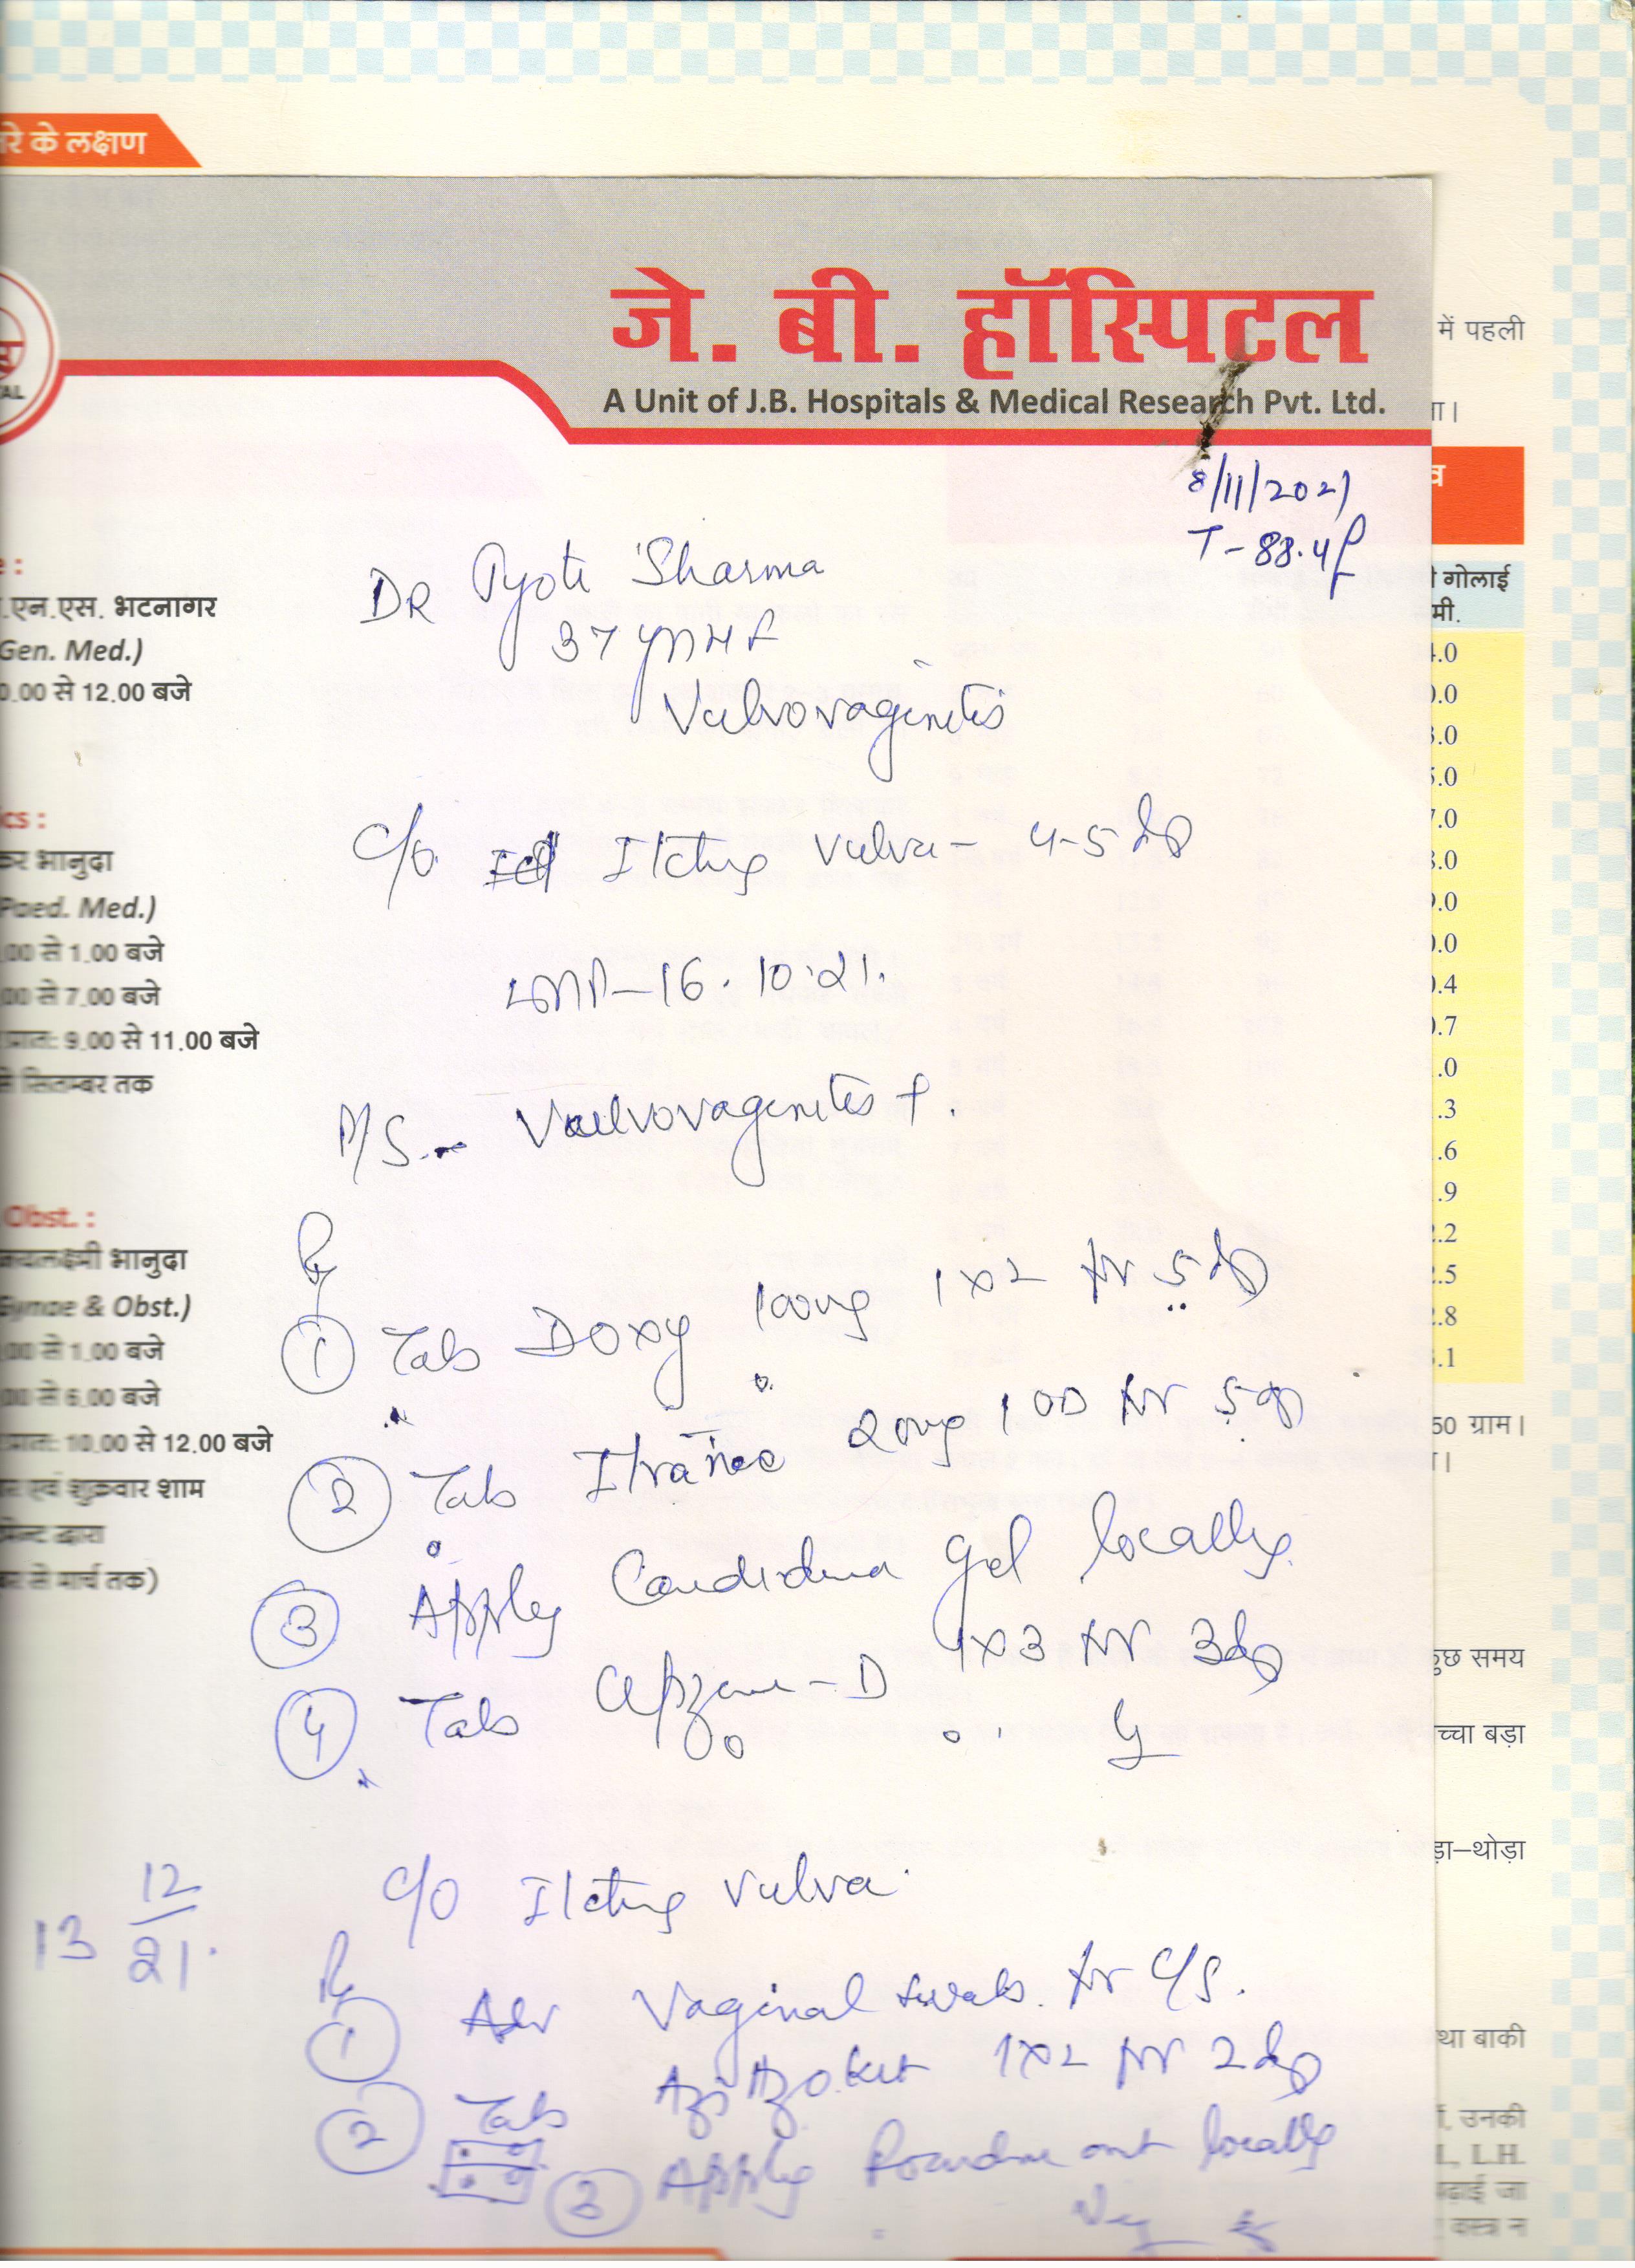 रे के लक्षण
जे. बी. हॉस्पिटल
A Unit of J.B. Hospitals & Medical Research Pvt. Ltd.
में पहली
ा।
व
गोलाई
मी.
8/11/2021
T-88.4f
DR Jyoti Sharma
37 yr
Vulvovaginitis
.एन.एस. भटनागर
Gen. Med.)
0.00 से 12.00 बजे
c/o Itching vulva - 4-5 d
LMP-16.10.21.
P/S - Vulvovaginitis +.
cs :
कर भानुदा
Paed. Med.)
.00 से 1.00 बजे
00 से 7.00 बजे
प्रात: 9.00 से 11.00 बजे
से सितम्बर तक
Obst. :
जयलक्ष्मी भानुदा
Gynae & Obst.)
.00 से 1.00 बजे
00 से 6.00 बजे
प्रात: 10.00 से 12.00 बजे
एवं शुक्रवार शाम
द्वारा
से मार्च तक)
Rx
1 Tab Doxy 100mg 1x2 for 5 d
2 Tab 20mg 1 OD for 5 d
3 Apply gel locally
4 Tab -D 1x3 for 3d
13 12/21.
c/o Itching vulva
Rx
1 Adv Vaginal swab for C/S.
2 Tab Kit 1x2 for 2 d
3 Apply oint locally
4.0
0.0
3.0
5.0
7.0
8.0
9.0
0.0
0.4
0.7
.0
.3
.6
.9
2.2
2.5
2.8
3.1
50 ग्राम।
कुछ समय
च्चा बड़ा
ड़ा–थोड़ा
था बाकी
, उनकी
, L.H.
ढ़ाई जा
वस्त्र न